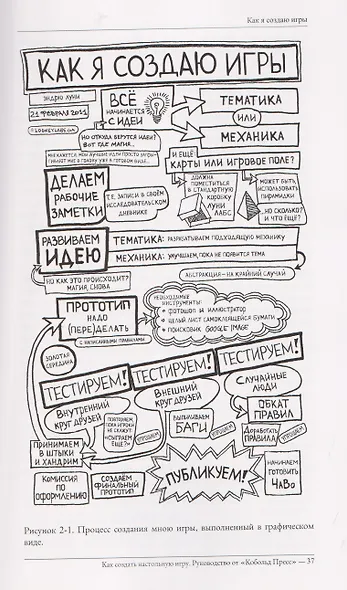 Как я создаю игры
КАК Я СОЗДАЮ ИГРЫ
ЭНДРЮ ЛУНИ
21 ФЕВРАЛЯ 2011
© LOONEYLABS.COM
ВСЁ
НАЧИНАЕТСЯ
С ИДЕИ
ТЕМАТИКА
ИЛИ
МЕХАНИКА
НО ОТКУДА БЕРУТСЯ ИДЕИ?
ВОТ ГДЕ МАГИЯ...
МНЕ КАЖЕТСЯ, МОИ ЛУЧШИЕ ИДЕИ ПРОСТО
МНЕ В ГОЛОВУ УЖЕ В ГОТОВОМ ВИДЕ...
И ЕЩЁ
КАРТЫ ИЛИ ИГРОВОЕ ПОЛЕ?
ДЕЛАЕМ
РАБОЧИЕ
ЗАМЕТКИ
Т.Е. ЗАПИСИ В СВОЁМ
ИССЛЕДОВАТЕЛЬСКОМ
ДНЕВНИКЕ
ДОЛЖНА
ПОМЕСТИТЬСЯ
В СТАНДАРТНУЮ
КОРОБКУ
ЛУНИ
ЛАБС
МОЖЕТ БЫТЬ,
ИСПОЛЬЗОВАТЬ
ПИРАМИДКИ
...НО СКОЛЬКО?
И ЧТО ЕЩЁ?
РАЗВИВАЕМ
ИДЕЮ
ТЕМАТИКА: РАЗРАБАТЫВАЕМ ПОДХОДЯЩУЮ МЕХАНИКУ
МЕХАНИКА: УЛУЧШАЕМ, ПОКА НЕ ПОЯВИТСЯ ТЕМА
АБСТРАКЦИЯ – НА КРАЙНИЙ СЛУЧАЙ
НО КАК ЭТО ПРОИСХОДИТ?
МАГИЯ, СНОВА
ПРОТОТИП
НАДО
(ПЕРЕ)ДЕЛАТЬ
С НАПИСАННЫМИ ПРАВИЛАМИ
НЕОБХОДИМЫЕ
ИНСТРУМЕНТЫ:
• ФОТОШОП И ИЛЛЮСТРАТОР
• ЦЕЛЫЙ ЛИСТ САМОКЛЕЯЩЕЙСЯ БУМАГИ
• ПОИСКОВИК GOOGLE IMAGE
ЗОЛОТАЯ
СЕРЕДИНА
ТЕСТИРУЕМ!
ТЕСТИРУЕМ!
ТЕСТИРУЕМ!
ВНУТРЕННИЙ
КРУГ ДРУЗЕЙ
ВНЕШНИЙ
КРУГ ДРУЗЕЙ
СЛУЧАЙНЫЕ
ЛЮДИ
ПОВТОРЯЕМ
ПОКА ИГРОКИ
НЕ СКАЖУТ:
«СЫГРАЕМ
ЕЩЁ?»
ВЫЛАВЛИВАЕМ
БАГИ
ОБКАТ
ПРАВИЛ
ДОРАБОТАТЬ
ПРАВИЛА
ПРИНИМАЕМ
В ШТЫКИ
И ХАНДРИМ
КОМИССИЯ
ПО
ОФОРМЛЕНИЮ
СОЗДАЁМ
ФИНАЛЬНЫЙ
ПРОТОТИП
ПУБЛИКУЕМ!
НАЧИНАЕМ
ГОТОВИТЬ
ЧаВо
Рисунок 2-1. Процесс создания мною игры, выполненный в графическом
виде.
Как создать настольную игру. Руководство от «Кобольд Пресс» — 37